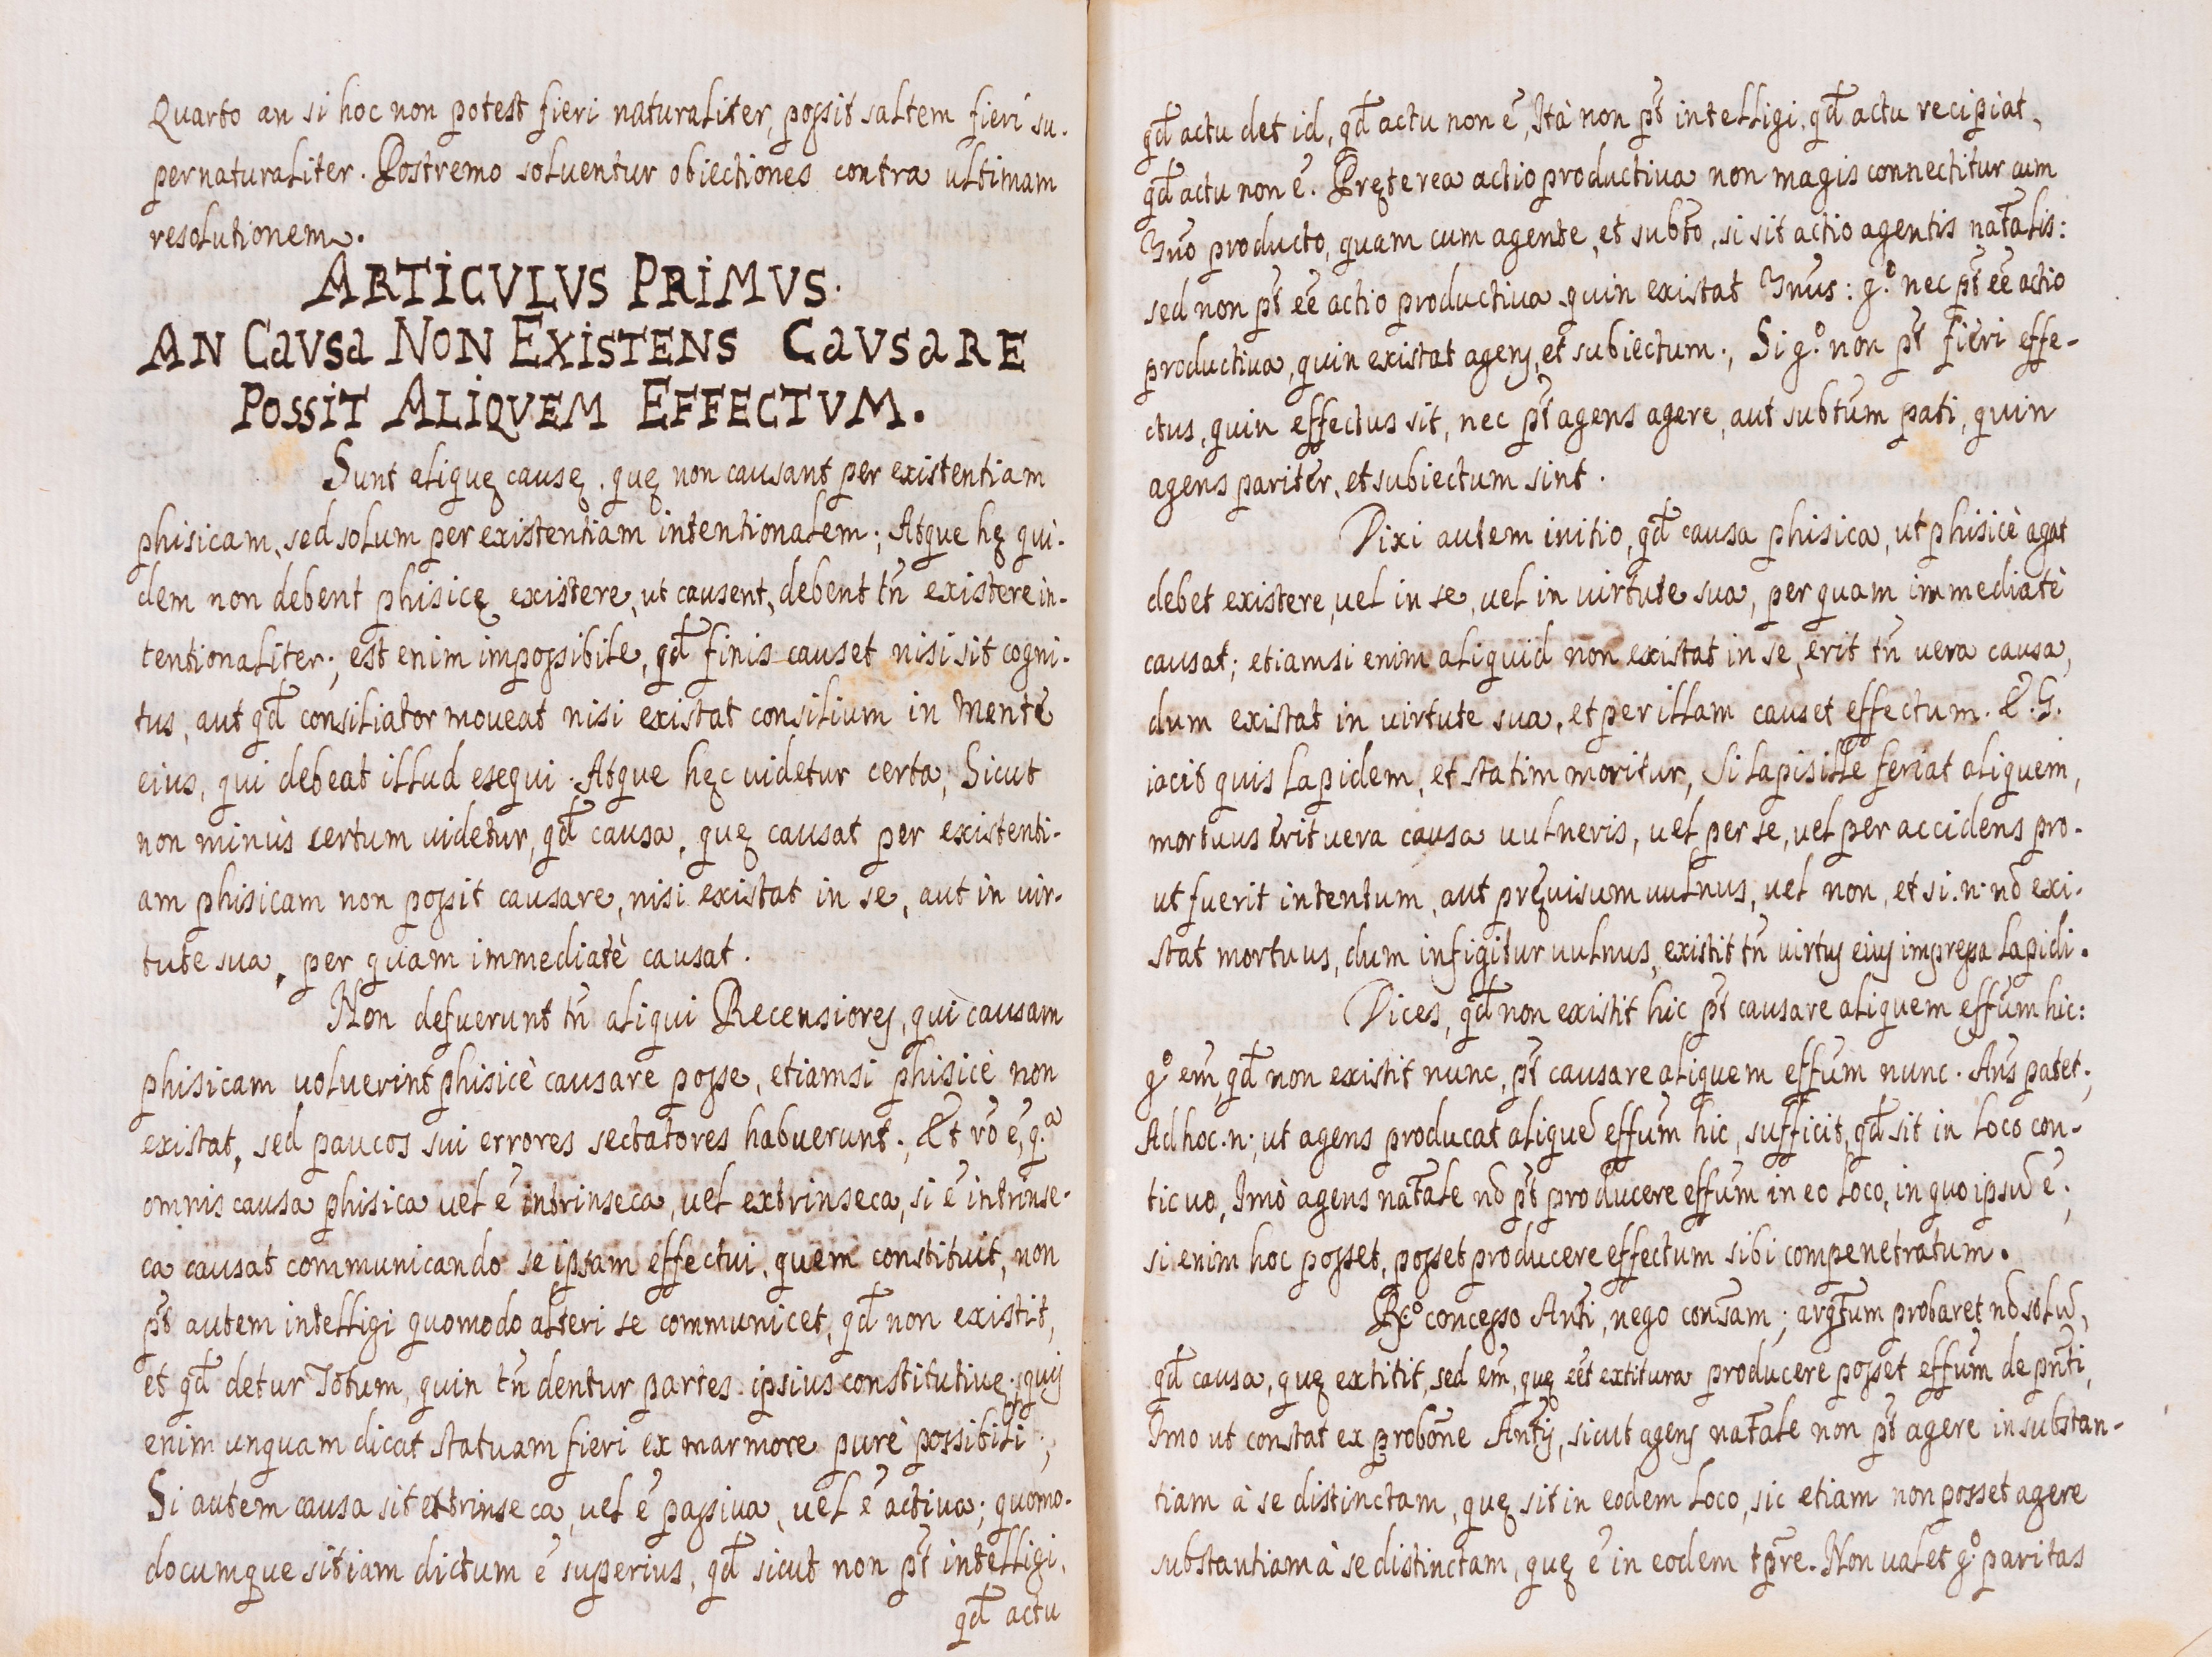 Quarto an si hoc non potest fieri naturaliter, possit saltem fieri su-
pernaturaliter. Postremo soluentur obiectiones contra ultimam
resolutionem.
ARTICULUS PRIMUS.
AN CAUSA NON EXISTENS CAUSARE
POSSIT ALIQUEM EFFECTUM.
Sunt aliquę causę, quę non causant per existentiam
phisicam, sed solum per existentiam intentionalem; Atque hę qui-
dem non debent phisicę existere, ut causent, debent tñ existere in-
tentionaliter; est enim impossibile, qd̃ finis causet nisi sit cogni-
tus, aut qd̃ consiliator moueat nisi existat consilium in mente
eius, qui debeat illud esequi. Atque hęc uidetur certa, Sicut
non minùs certum uidetur, qd̃ causa, quę causat per existenti-
am phisicam non possit causare, nisi existat in se, aut in uir-
tute sua, per quam immediatè causat.
Non defuerunt tñ aliqui Recensiores, qui causam
phisicam uoluerint phisicè causare posse, etiamsi phisicè non
existat, sed paucos sui errores sectatores habuerunt; Et rõ ẽ, q.ª
omnis causa phisica uel ẽ intrinseca, uel extrinseca, si ẽ intrinse-
ca causat communicando se ipsam effectui, quem constituit, non
pt̃ autem intelligi quomodo alteri se communicet, qd̃ non existit,
et qd̃ detur Totum, quin tñ dentur partes ipsius constitutiuę; quis
enim unquam dicat statuam fieri ex marmore purè possibili;
Si autem causa sit extrinseca, uel ẽ passiua, uel ẽ actiua; quomo-
documque sit iam dictum ẽ superius, qd̃ sicut non pt̃ intelligi,
qd̃ actu
qd̃ actu det id, qd̃ actu non ẽ, Ità non pt̃ intelligi, qd̃ actu recipiat,
qd̃ actu non ẽ. Pręterea actio productiua non magis connectitur cum
Ynõ producto, quam cum agente, et subt̃o, si sit actio agentis nat̃alis:
sed non pt̃ eẽ actio productiua quin existat Ynũs: g.º nec pt̃ eẽ actio
productiua, quin existat agens, et subiectum; Si g.º non pt̃ fieri effe-
ctus, quin effectus sit, nec pt̃ agens agere, aut subt̃um pati, quin
agens pariter, et subiectum sint.
Dixi autem initio, qd̃ causa phisica, ut phisicè agat
debet existere, uel in se, uel in uirtute sua, per quam immediatè
causat; etiamsi enim aliquid non existat in se, erit tñ uera causa,
dum existat in uirtute sua, et per illam causet effectum. E.G.
iacit quis lapidem, et statim moritur, Si lapis ille feriat aliquem,
mortuus erit uera causa uulneris, uel per se, uel per accidens pro-
ut fuerit intentum, aut pręuisum uulnus, uel non, et si .n. nõ exi-
stat mortuus, dum infigitur uulnus, existit tñ uirtus eius impressa lapidi.
Dices, qd̃ non existit hic pt̃ causare aliquem effũm hic:
g.º em̃, qd̃ non existit nunc, pt̃ causare aliquem effũm nunc. Añs patet;
Ad hoc .n; ut agens producat aliquẽ effũm hic, sufficit, qd̃ sit in loco con-
tiguo, Imò agens nat̃ale nõ pt̃ producere effũm in eo loco, in quo ipsũ ẽ;
si enim hoc posset, posset producere effectum sibi compenetratum.
Rº concesso Añti, nego conãm; arg̃tum probaret nõ solũ,
qd̃ causa, quę extitit, sed em̃, quę eẽt extitura producere posset effũm de pñti,
Imo ut constat ex probõne Añtis, sicut agens nat̃ale non pt̃ agere in substan-
tiam à se distinctam, quę sit in eodem loco, sic etiam non posset agere
substantiam à se distinctam, quę ẽ in eodem tp̃re. Non ualet g.º paritas